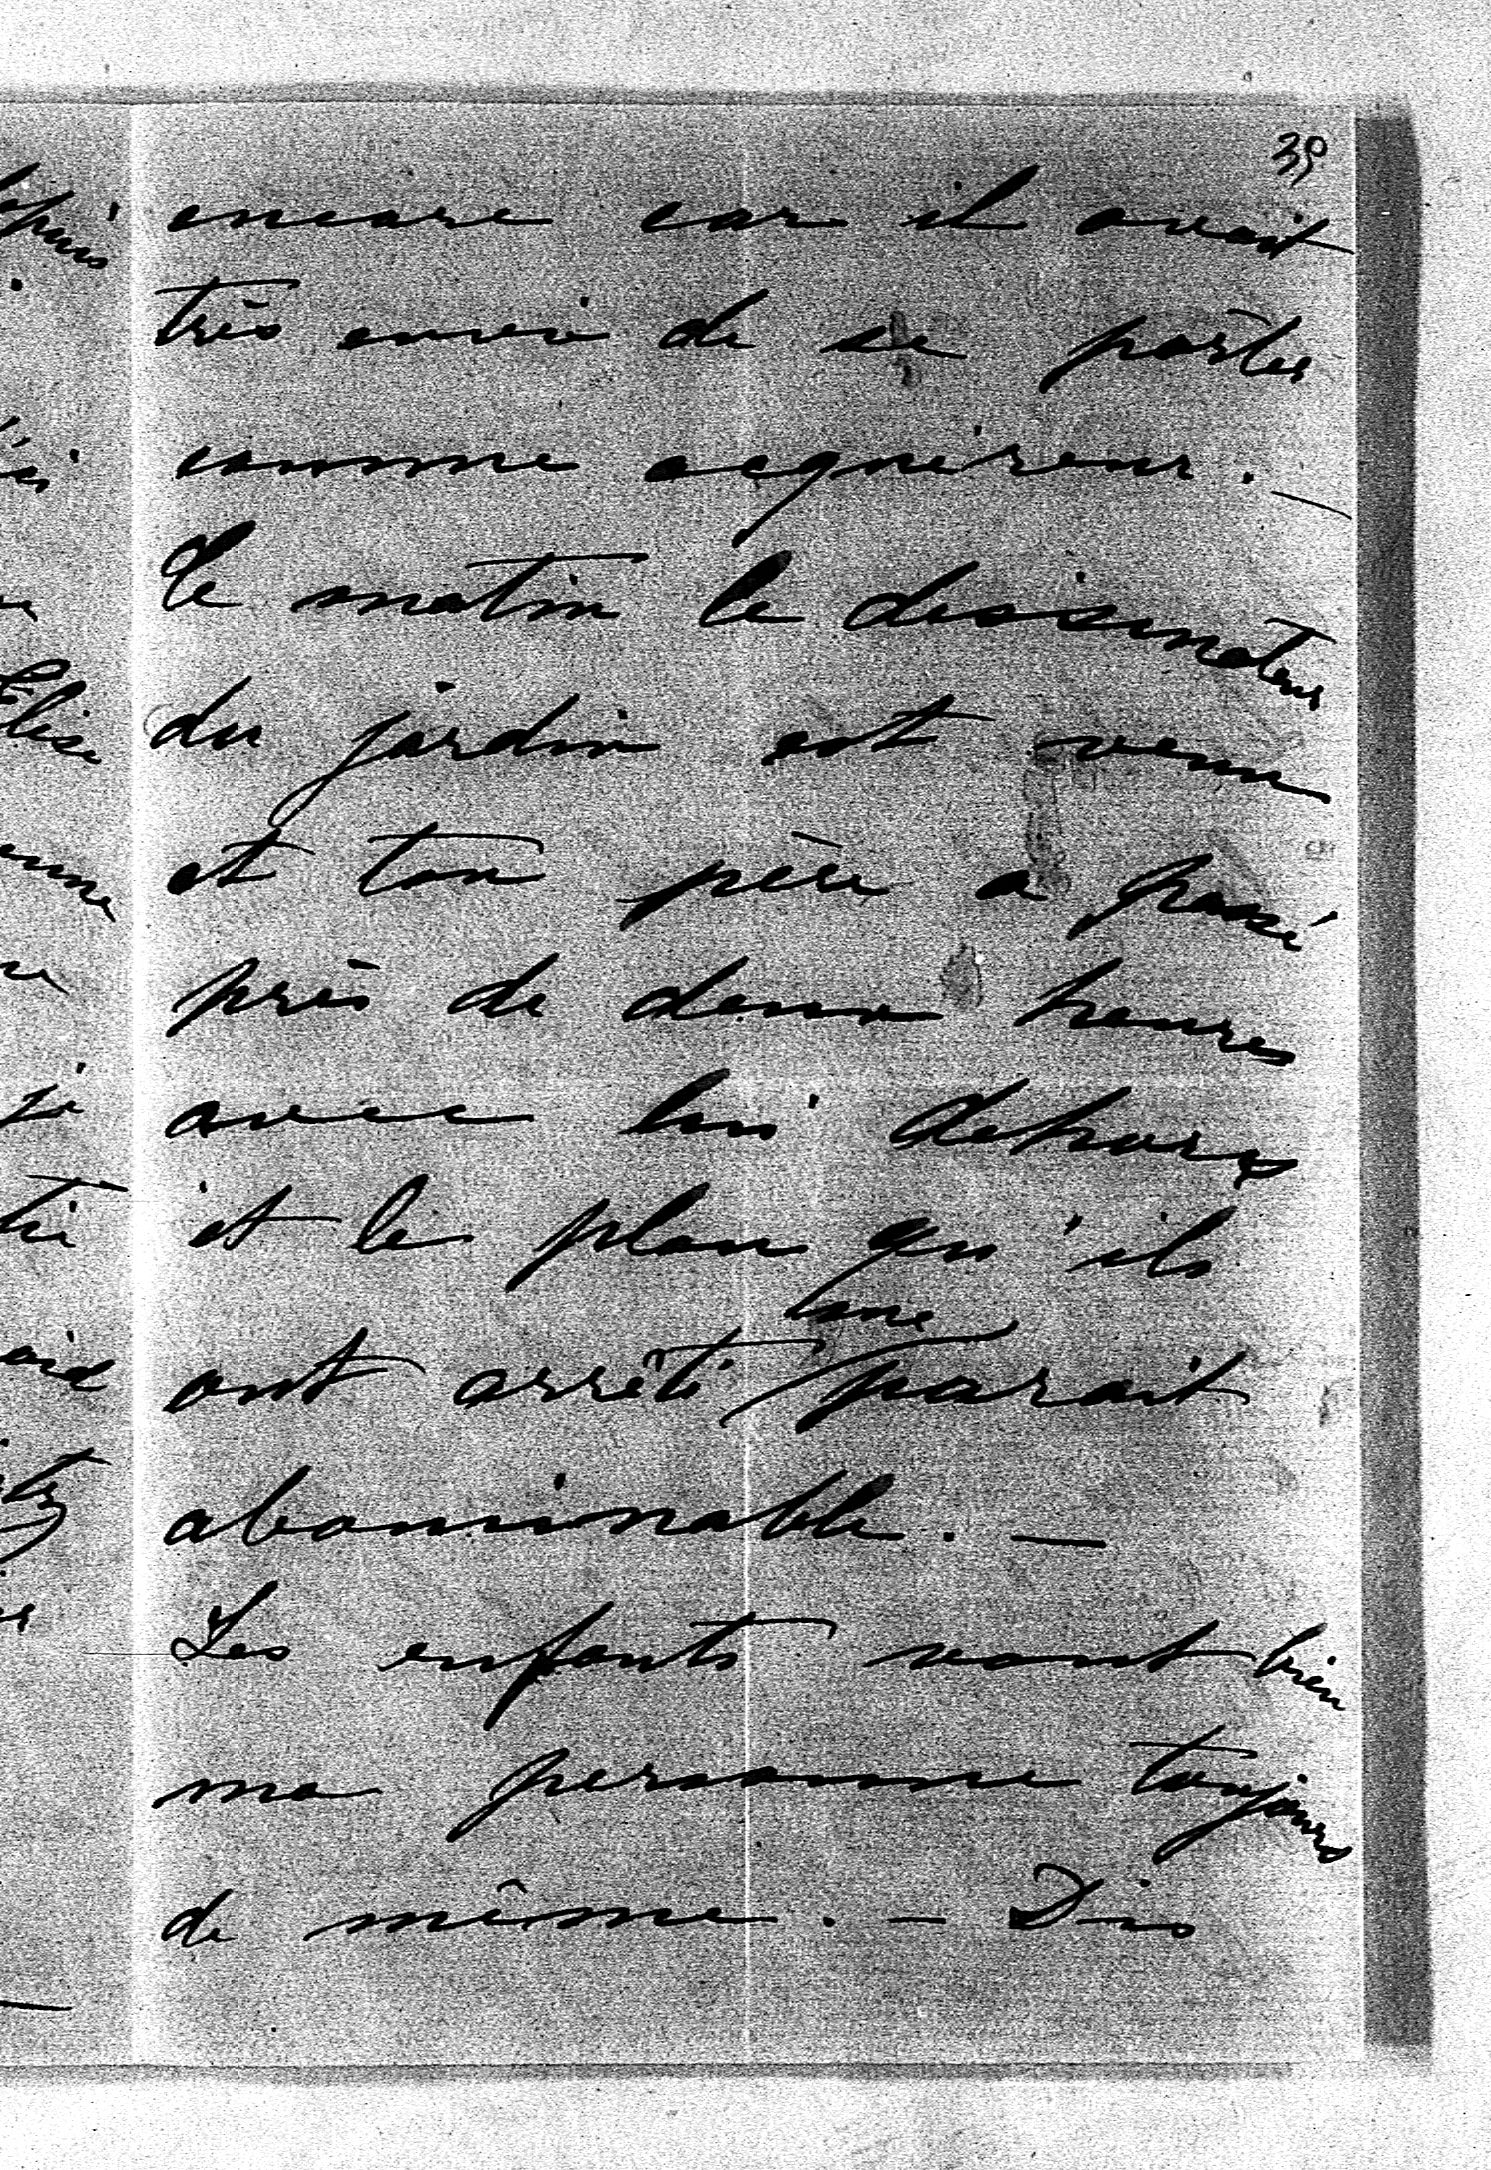 39
encore car il avait
très envie de se porter
comme acquéreur. —
Le matin le dessinateur
du jardin est venu
et ton père a passé
près de deux heures
avec lui dehors
et le plan qu'ils
ont arrêté me parait
abominable. —
Les enfants vont bien
ma personne toujours
de même. — Dis